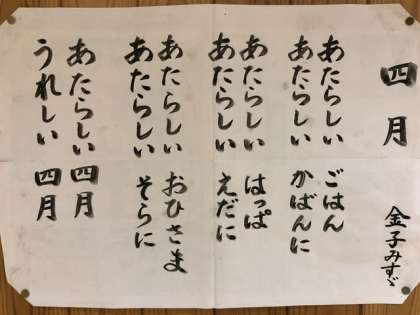 四月
金子みすゞ
あたらしい ごはん
あたらしい かばんに
あたらしい はっぱ
あたらしい えだに
あたらしい おひさま
あたらしい そらに
あたらしい 四月
うれしい 四月